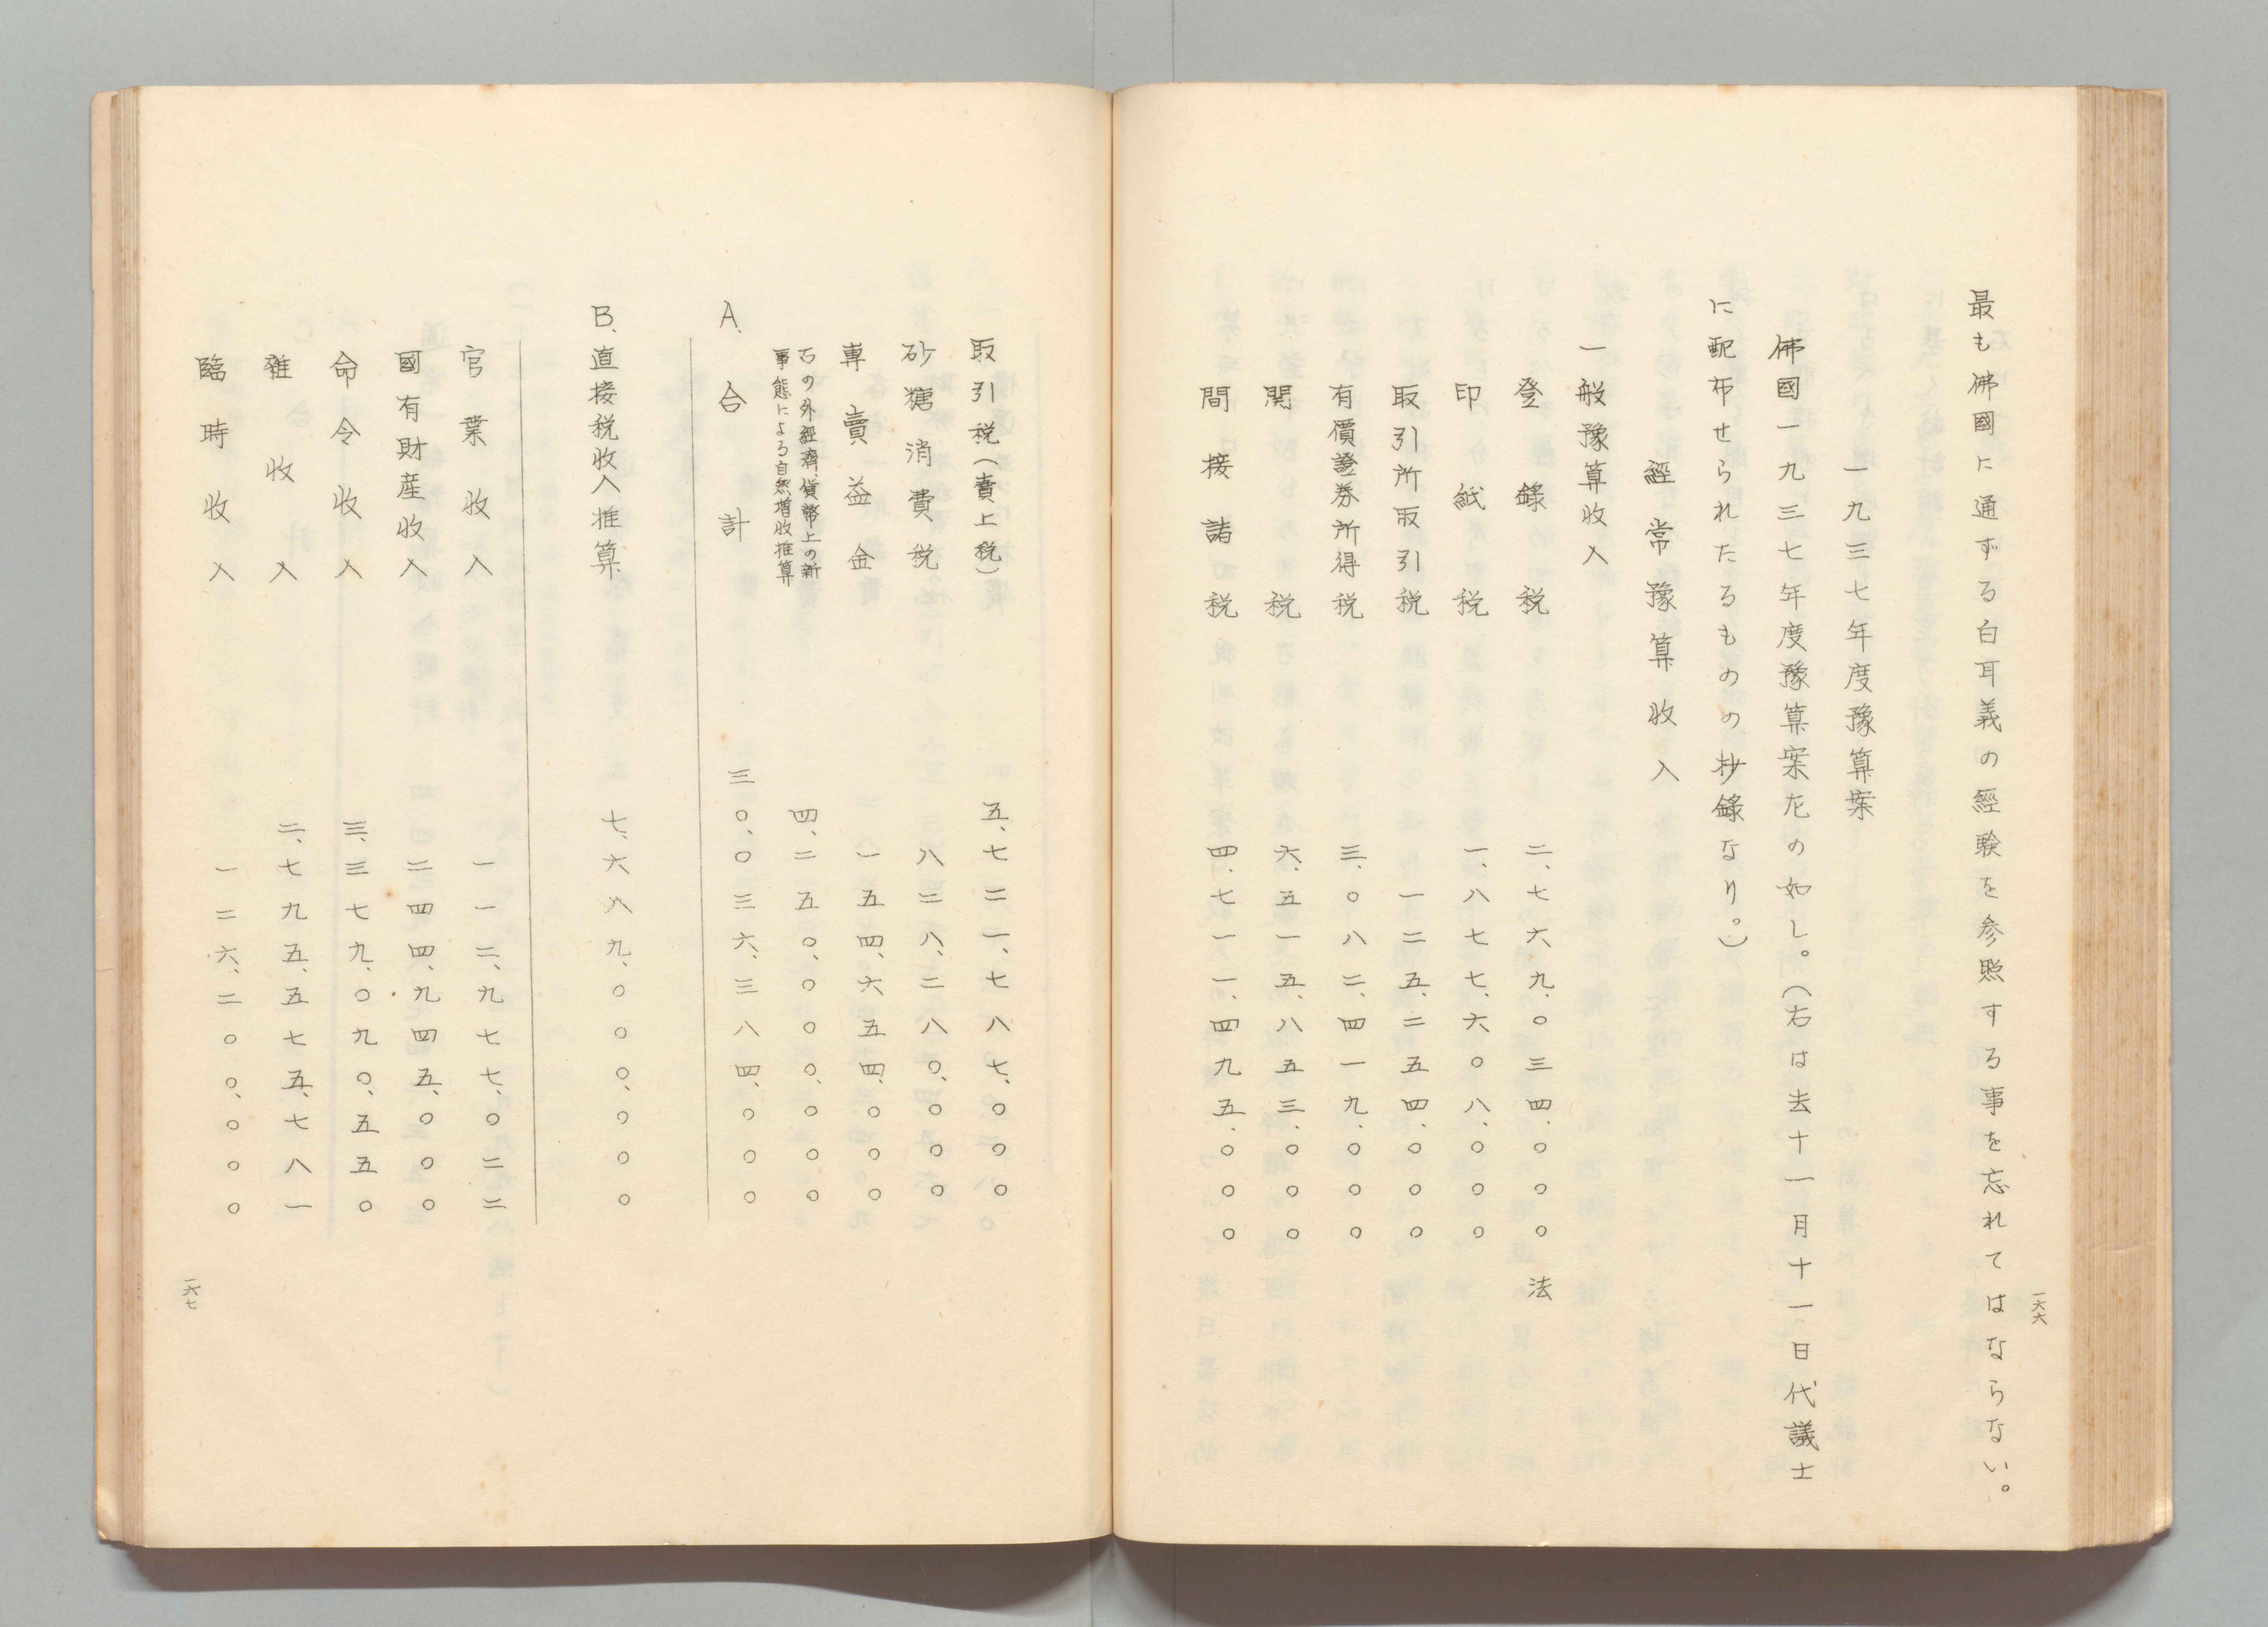 最も佛國に通ずる白耳義の經験を参照する事を忘れてはならない。
一九三七年度豫算案
佛國一九三七年度豫算案左の如し。(右は去十一月十一日代議士
に配布せられたるものの抄錄なり。)
經常豫算收入
一般豫算收入
登錄税 二、七六九、〇三四、〇〇〇法
印紙税 一、八七七、六〇八、〇〇〇
取引所取引税 一二五、二五四、〇〇〇
有價證券所得税 三、〇八二、四一九、〇〇〇
関税 六、五一五、八五三、〇〇〇
間接諸税 四、七一一、四九五、〇〇〇
一六六
取引税(賣上税) 五、七二一、七八七、〇〇〇
砂糖消費税 八二八、二八〇、〇〇〇
專賣益金 一五四、六五四、〇〇〇
右の外經濟、貨幣上の新
事態による自然增收推算 四、二五〇、〇〇〇、〇〇〇
A. 合計 三〇、〇三六、三八四、〇〇〇
B. 直接税收入推算 七、六八九、〇〇〇、〇〇〇
官業收入 一一二、九七七、〇二二
國有財産收入 二四四、九四五、〇〇〇
命令收入 三、三七九、〇九〇、五五〇
雜收入 二、七九五、五七五、七八一
臨時收入 一二六、二〇〇、〇〇〇
一六七